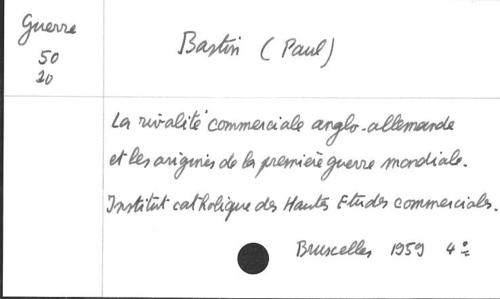 Guerre
50
20
Bastin (Paul)
La rivalité commerciale anglo-allemande
et les origines de la première guerre mondiale.
Institut catholique des Hautes Etudes commerciales.
Bruxelles 1959 4º